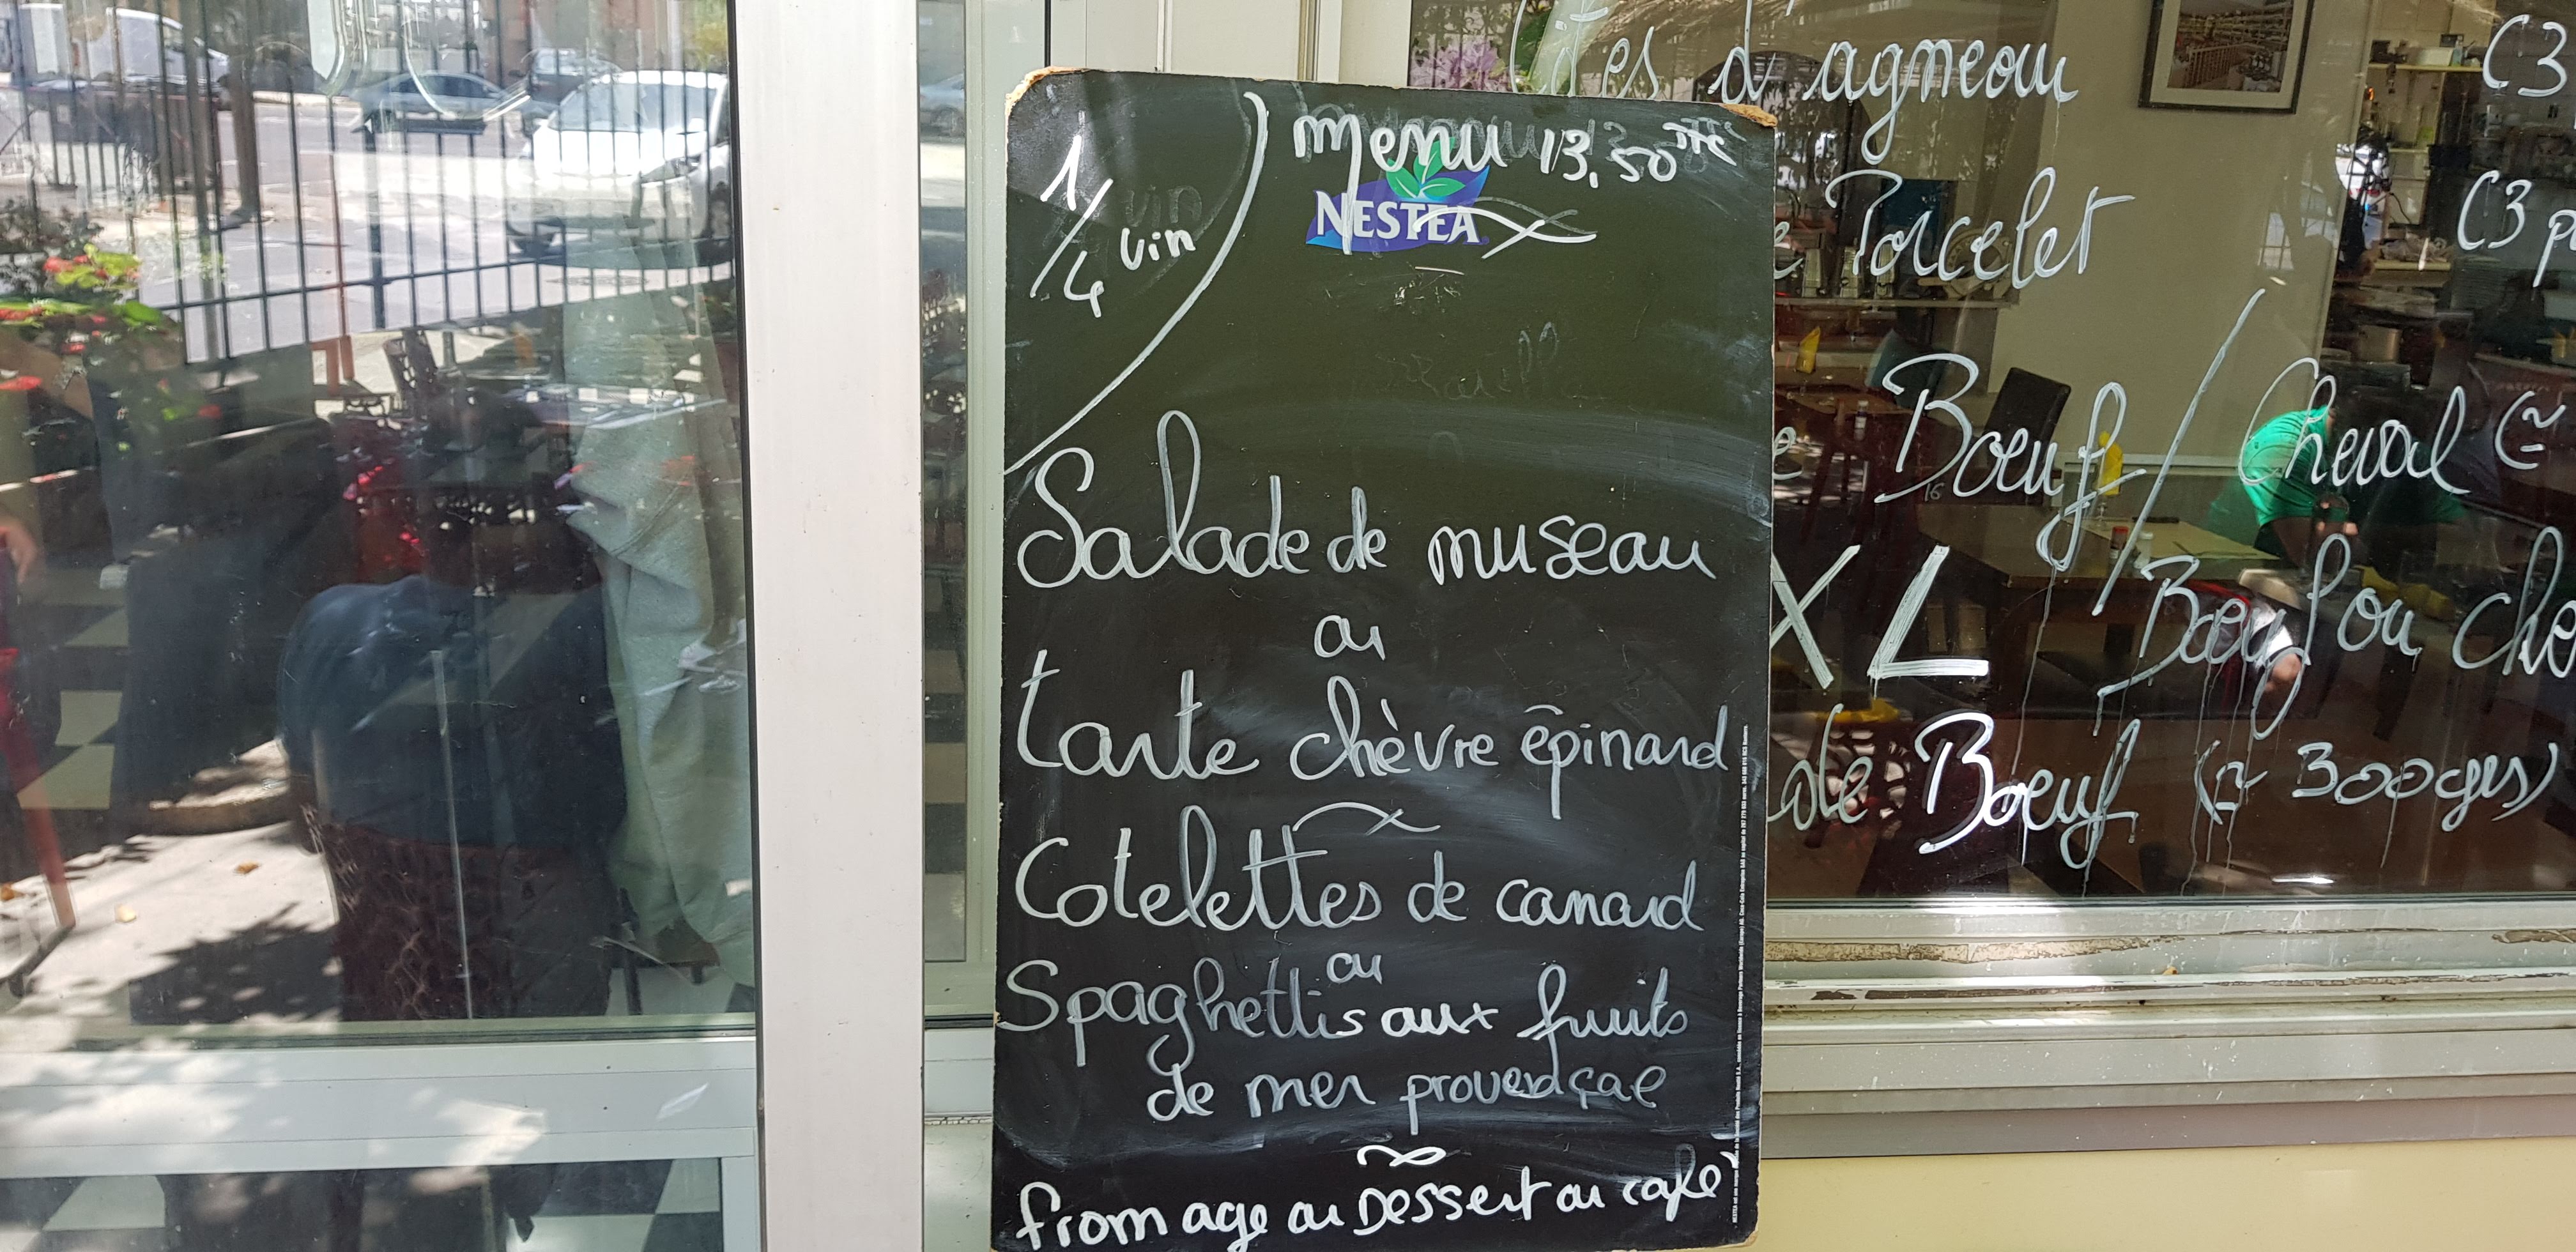 menu 13,50 TTC
NESTEA
1/4 vin
Salade de museau
ou
tarte chèvre épinard
Cotelettes de canard
ou
Spaghettis aux fruits
de mer provençale
fromage ou Dessert ou café
d'agneau
Porcelet
Boeuf / Cheval (≃
XL / Boeuf ou che
de Boeuf (≃ 300grs)
C3
C3 p